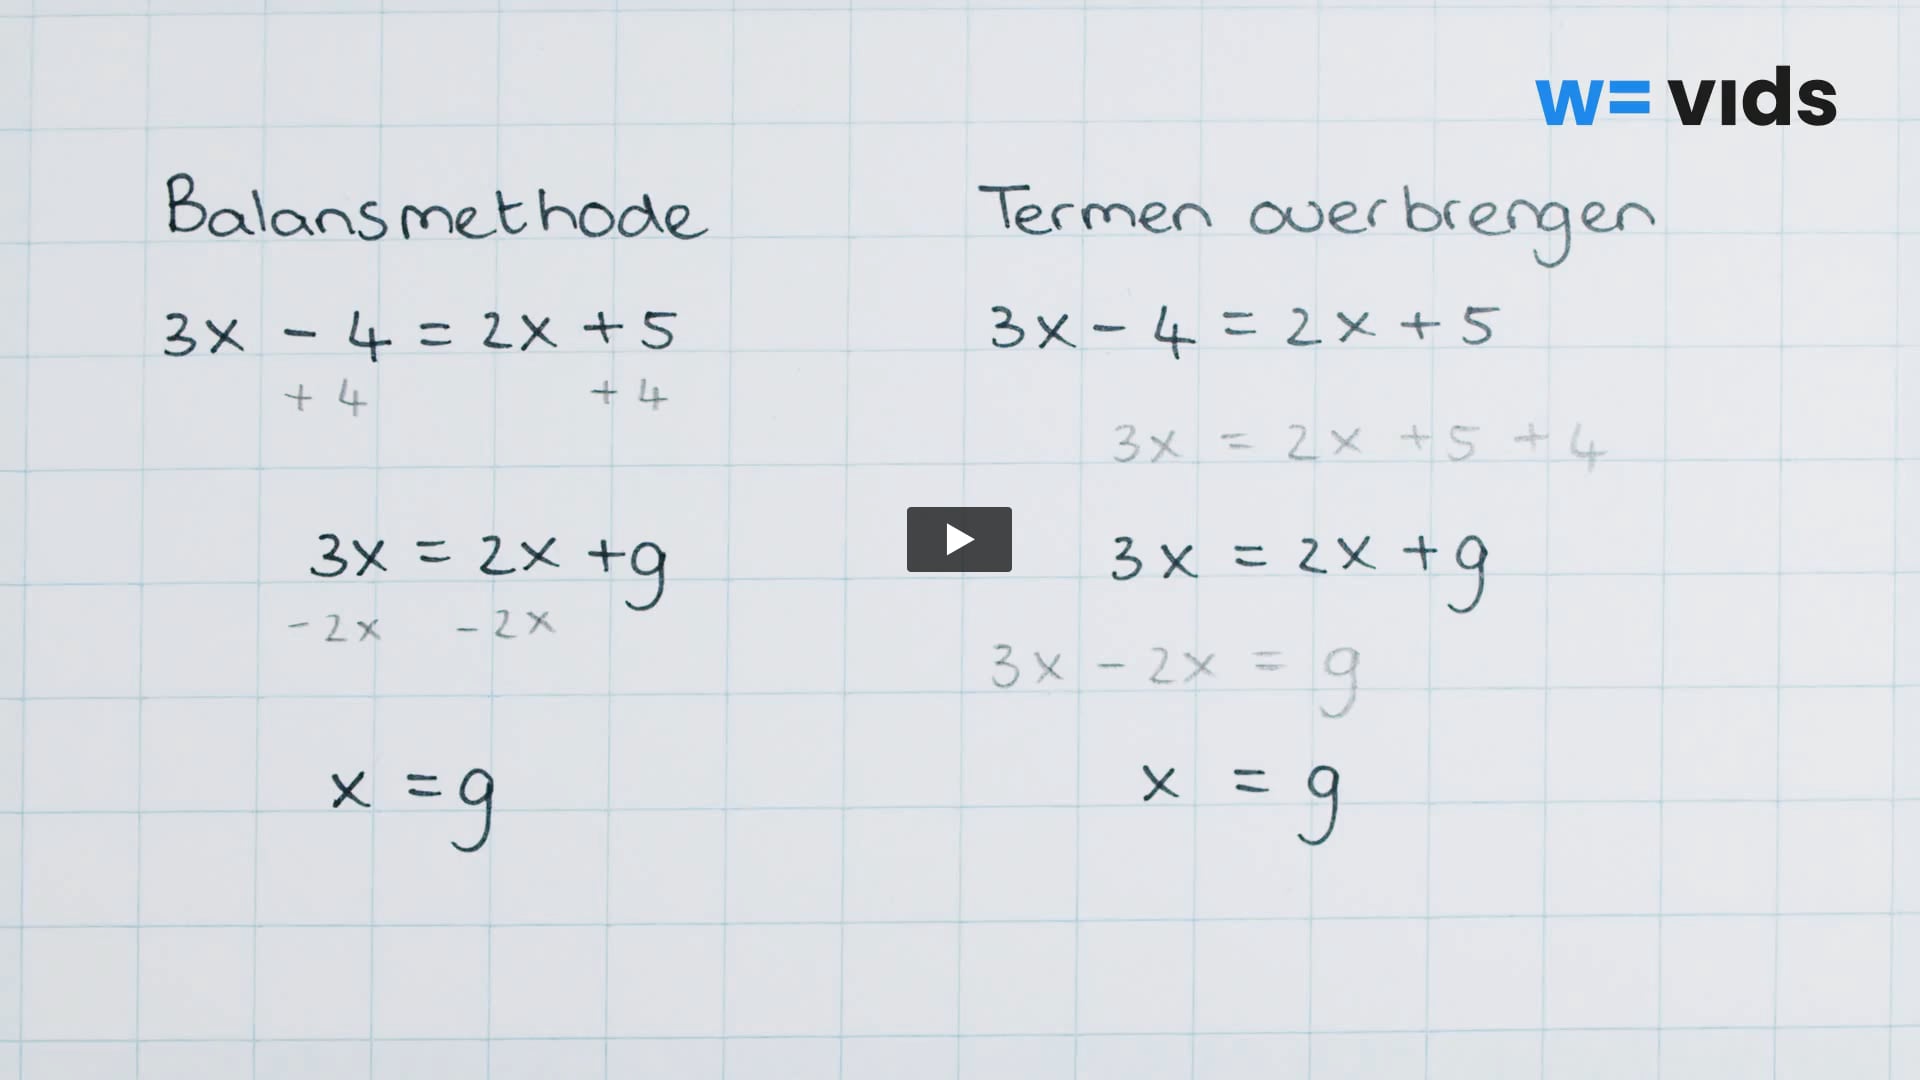 w= vids
Balansmethode
3x - 4 = 2x + 5
+ 4 + 4
3x = 2x + 9
- 2x - 2x
x = 9
Termen overbrengen
3x - 4 = 2x + 5
3x = 2x + 5 + 4
3x = 2x + 9
3x - 2x = 9
x = 9